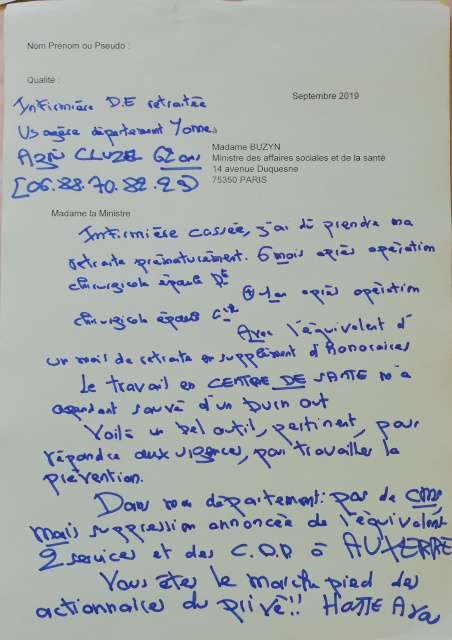 Nom Prénom ou Pseudo :
Qualité :
Septembre 2019
Infirmière D.E retraitée
Usagère département Yonne
à
CLUZEL 62 ans
Madame BUZYN
Ministre des affaires sociales et de la santé
14 avenue Duquesne
75350 PARIS
Madame la Ministre
Infirmière cassée, j'ai dû prendre ma
retraite prématurément. 6 mois après opération
chirurgicale épaule Dte
⊕ 1 an après opération
chirurgicale épaule Gche
Avec l'équivalent d'
un mail de retraite en supplément d'honoraires
Le travail en CENTRE DE SANTE m'a
cependant sauvé d'un burn out
Voilà un bel outil, pertinent, pour
répondre aux urgences, pour travailler la
prévention.
Dans mon département: pas de CMS
mais suppression annoncée de l'équivalent
2 services et des C.D.D à AUXERRE
Vous êtes le marche pied des
actionnaires du privé!!